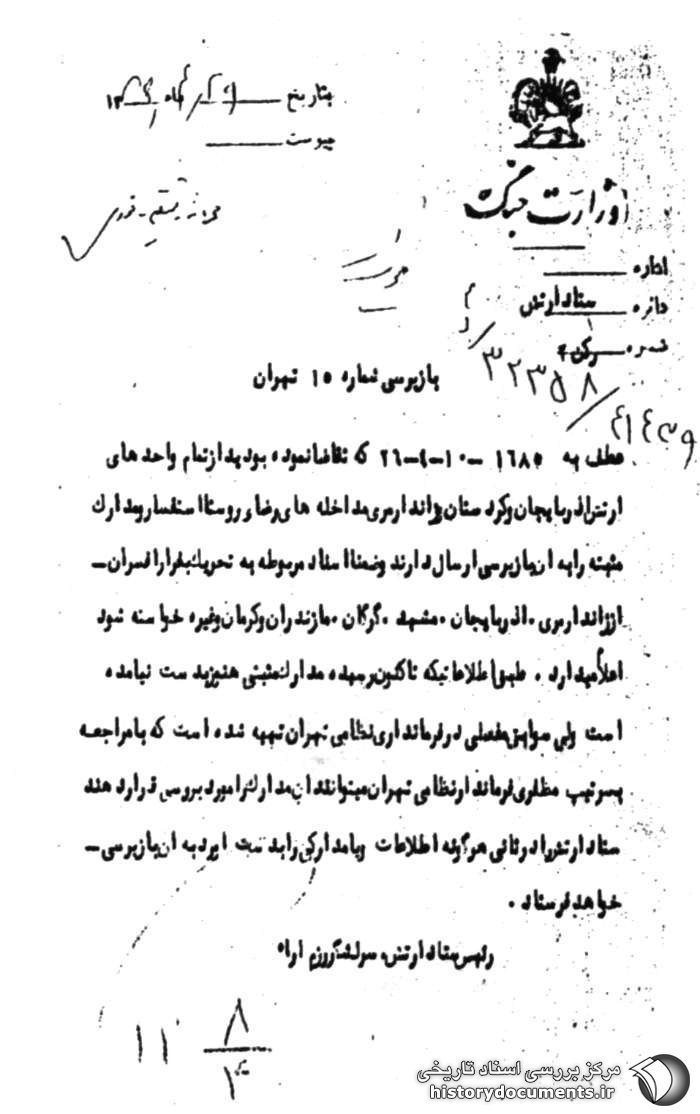 بتاریخ ــــ ماه ــــ ۱۳
پیوست ــــ
وزارت جنگ
اداره ــــ
دائره ستاد ارتش
شماره رکن ۲
۳۲۳۵۸
بازپرسی شماره ۱۵ تهران
عطف به ۱۶۸۵ -۱۰-۴-۲۶ که تقاضا نموده بودید از تمام واحدهای
ارتش آذربایجان و کردستان ژاندارمری مداخله های رضا و روستا استفسار و مدارک
مثبته را به آن بازپرسی ارسال دارند وضمنا اسناد مربوطه به تحریک بفرار افسران -
از ژاندارمری . آذربایجان . مشهد . گرگان . مازندران و کرمان وغیره خواسته شود
اعلام میدارد . طبق اطلاعاتیکه تاکنون رسیده مدارک مثبتی هنوز بدست نیامده
است ولی سوابق مفصلی در فرمانداری نظامی تهران تهیه شده است که با مراجعه
بسرتیپ مظفری فرماندار نظامی تهران میتوانند آن مدارک را مورد بررسی قرار دهند
ستاد ارتش در ثانی هرگونه اطلاعات ویا مدارکی را بدست آورد به آن بازپرسی -
خواهد فرستاد .
رئیس ستاد ارتش، سرلشگر رزم آراء
۱۱ ۸
۴
مرکز بررسی اسناد تاریخی
historydocuments.ir